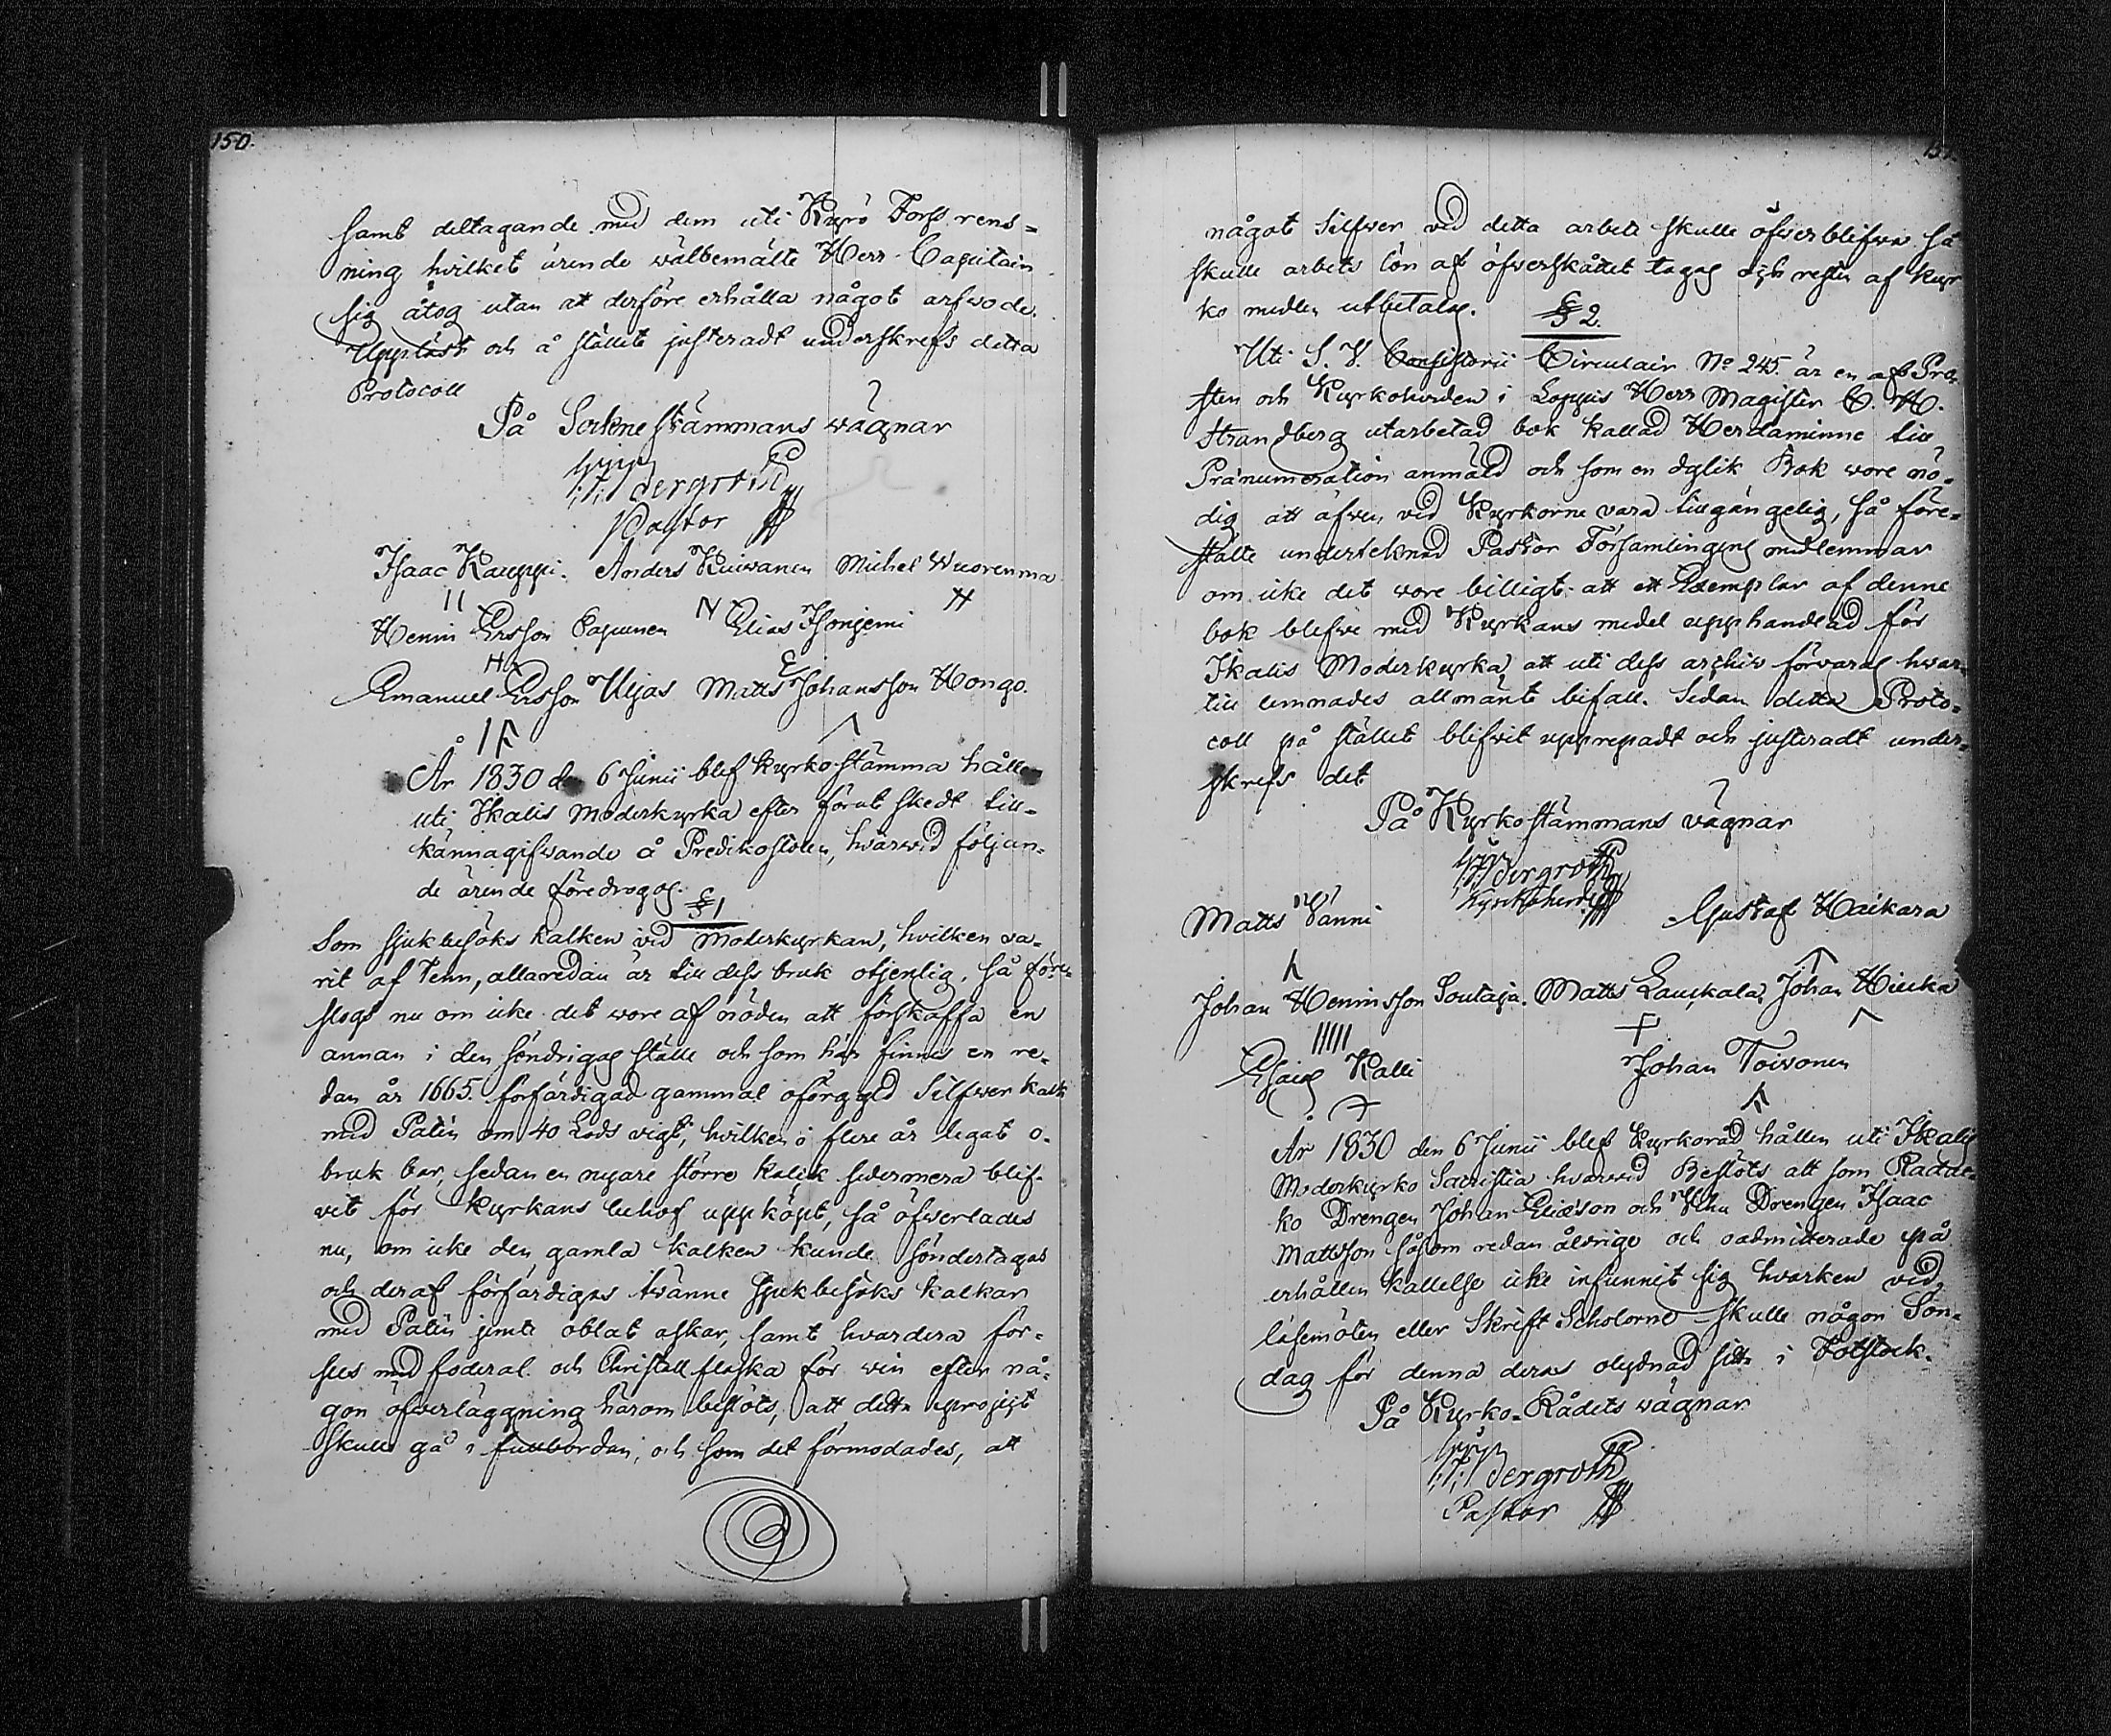 150.
samt deltagande med dem uti Kyrö Forss rens=
ning hvilket ärende wälbemälte Herr Capitain
sig åtog utan at derföre erhålla något arfwode.
Uppläst och å stället justeradt underskrefs detta
Protocoll
På Sockne stämmans wägnar
Bergroth
Pastor
Isaac Kauppi. Anders Kuiwanen Michel Wuorenma
Henric Ersson Papunen Elias Isonjemi
Emanuel Ersson Uljas Matts Johansson Hongo.
År 1830 den 6 Junii blef Kyrko stämma hållen
uti Ikalis Moderkyrka efter förut skedt till-
kännagifwande å Predikostolen, hvarwid följan-
de ärende föredrogos.
§ 1
Som sjukbesöks kalken vid Moderkyrkan, hvilken va-
rit af Tenn, allaredan är till dess bruk otjenlig, så före-
slogs nu om icke det wore af nöden att förskaffa en
annan i den söndrigas ställe och som här finnes en re-
dan år 1665. förfärdigad gammal oförgyld Silfwer kalk
med Patén om 40 Lods vigt, hvilken i flere år legat o-
bruk bar, sedan en nyare större kalk sedermera blif-
vit för Kyrkans behof uppköpt, så öfwerlades
nu, om icke den gamla kalken kunde söndertagas
och deraf förfärdigas twänne Sjukbesöks kalkar
med Patén jemte oblat askar, samt hvardera för-
ses med foderal och Christall flaska för win efter nå-
gon öfverläggning härom beslöts, att detta project
skulle gå i fullbordan, och som det förmodades, att
något Silfwer vid detta arbete skulle öfwerblifwa så
skulle arbets lön af öfwerskåttet tagas och resten af Kyr
ko medlen utbetalas.
§ 2.
Uti S. V. Consistorii Circulair No 245. är en af Pro-
sten och Kyrkoherden i Loppis Herr Magister C. H.
Strandberg utarbetad bok kallad Herdaminne till
Pränumeration anmäld och som en dylik Bok wore nö-
dig att äfwen vid Kyrkorne vara tillgängelig, så före-
stälte undertecknad Pastor Församlingens medlemmar
om icke det wore billigt att ett Exemplar af denne
bok blefwe med Kyrkans medel upphandlad för
Ikalis Moderkyrka, att uti dess archiv förvaras hwar-
till lemnades allmänt bifall. Sedan detta Proto-
coll på stället blifwit upprepadt och justeradt under-
skrefs det
På Kyrko stämmans vägnar
Bergroth
Kyrkoherde
Matts Vänni Gustaf Haikara
Johan Henricsson Soutaja. Matts Lauskala, Johan Hiecka
Esaias Kalli Johan Toivonen
År 1830 den 6 Junii blef Kyrkoråd hållen uti Ikalis
Moderkyrko Sacristia hwarwid Beslöts att som
ko Drengen Johan Eliæson och Drengen Isaac
Mattsson såsom redan åldrige och oadmitterade på
erhållen kallelse icke infunnit sig hvarken vid
läsemöten eller Skrift Scholorne skulle någon Sön-
dag för denna deras olydnad sitta i Fotstock.
På Kyrko-Rådets wägnar
Bergroth
Pastor